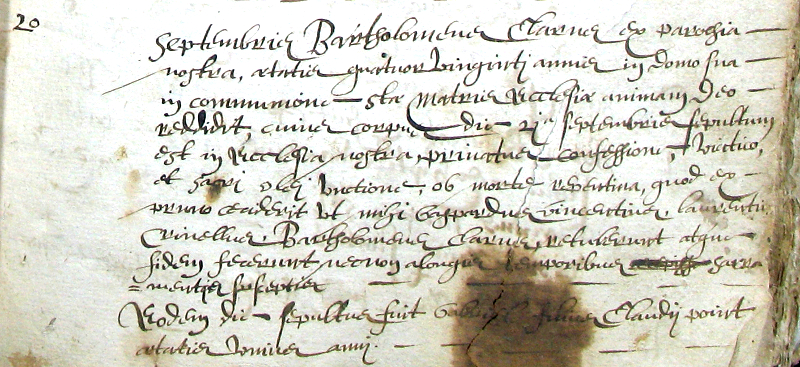 20
Septembris Bartholomeus Clarus ex parochia
nostra, ætatis quatuor viginti annis in domo sua
in communione Stæ Matris Ecclesiæ animam Deo
reddidit, cuius corpus die 21ᵃ Septembris sepultum
est in Ecclesia nostra, privatus confessione, viatico,
et sacri olei unctione, ob mortē repentina, quod ex
ceciderit ut mihi Gaspardus Vincentius, Laurentiu
Crivellus, Bartholomeus Clarus, retulerunt atque
fidem fecerunt necnon temporibus sacra
=mentis susceptis
Eodem die sepultus fuit filius Claudij
ætatis unius anni.